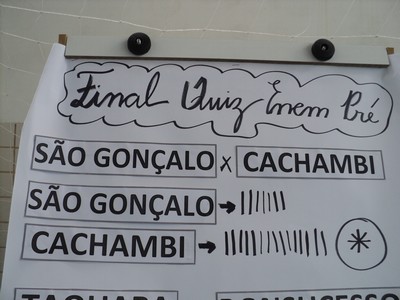 Final Quiz Enem Pré
SÃO GONÇALO x CACHAMBI
SÃO GONÇALO →
CACHAMBI → *
TAQUARA BONSUCESSO